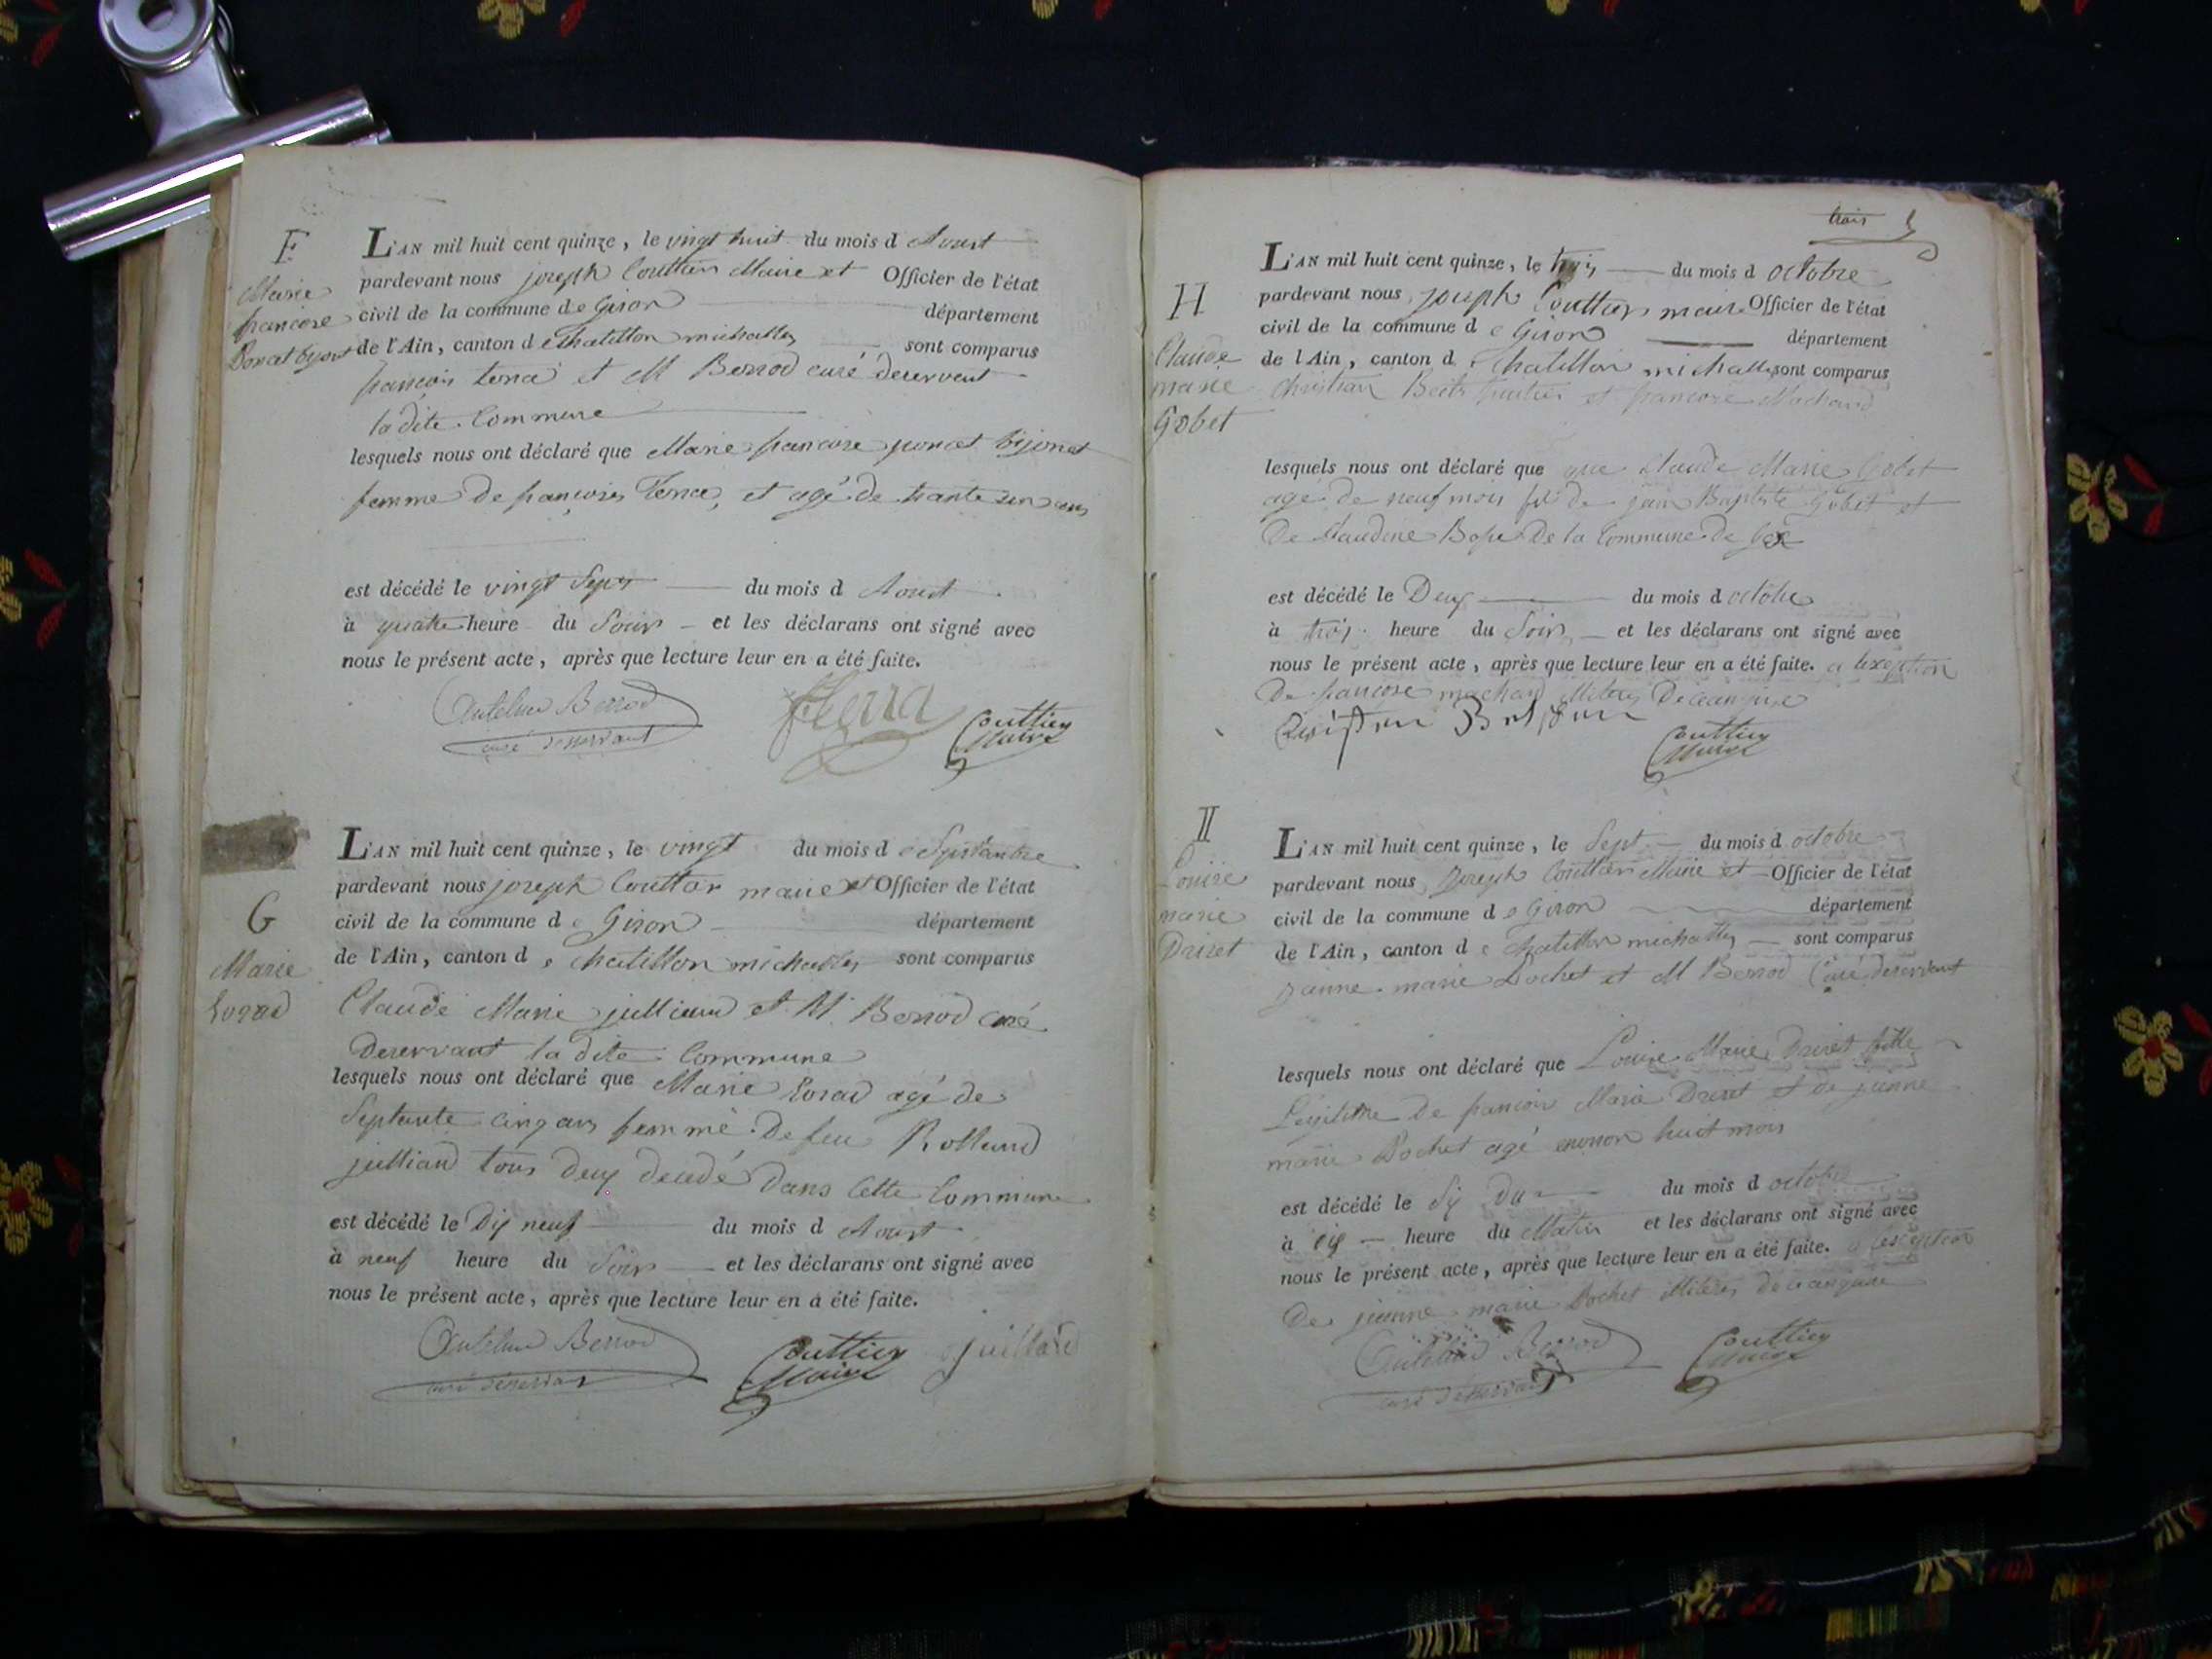 F
Marie
francoise
Poncet bijonet
L'AN mil huit cent quinze, le vingt huit du mois d Aoust
pardevant nous joseph Couttier Maire et Officier de l'état
civil de la commune de Giron département
de l'Ain, canton de Chatillon michalles sont comparus
françois et M Berrod curé deservent
la dite Commune
lesquels nous ont déclaré que Marie francoise poncet bijonet
femme de françois et agé de trante un ans
est décédé le vingt Sept du mois d Aoust
à quatre heure du Soir et les déclarans ont signé avec
nous le présent acte, après que lecture leur en a été faite.
Antelme Berrod
curé desservant
Couttier
Maire
G
Marie
L'AN mil huit cent quinze, le vingt du mois d e Septambre
pardevant nous joseph Couttier maire et Officier de l'état
civil de la commune d e Giron département
de l'Ain, canton d e chatillon michalles sont comparus
Claude Marie julliand et M. Berrod curé
Deservant la dite Commune
lesquels nous ont déclaré que Marie agé de
Septante cinq ans femme De feu Rolland
julliand tous deux decedé Dans Cette Commune
est décédé le Dix neuf du mois d Aoust
à neuf heure du Soir et les déclarans ont signé avec
nous le présent acte, après que lecture leur en a été faite.
Antelme Berrod
curé desservant
Couttier
Maire
juilland
trois
H
Claude
marie
Gobet
L'AN mil huit cent quinze, le trois du mois d octobre
pardevant nous joseph Couttier maire Officier de l'état
civil de la commune d e Giron département
de l'Ain, canton d e Chatillon michalles sont comparus
christian fruitier et francoise Machard
lesquels nous ont déclaré que que Claude Marie Gobet
agé de neuf mois fils de jean Baptiste Gobet et
De Claudine De la Commune de Gex
est décédé le Deux du mois d octobre
à trois heure du Soir et les déclarans ont signé avec
nous le présent acte, après que lecture leur en a été faite. a lexeption
De francoise machard De ce anquise
Couttier
Maire
II
Louise
marie
Driret
L'AN mil huit cent quinze, le Sept du mois d octobre
pardevant nous Joseph Couttier Maire et Officier de l'état
civil de la commune d e Giron département
de l'Ain, canton d e Chatillon michalles sont comparus
jeanne marie Bochet et M Berrod Curé deservant
lesquels nous ont déclaré que Louise Marie Driret fille
Légitime De francois Marie Driret et de jeanne
marie Bochet agé environ huit mois
est décédé le Six du du mois d octobre
à Six heure du Matin et les déclarans ont signé avec
nous le présent acte, après que lecture leur en a été faite. a lexeption
De jeanne marie Bochet de ce anquise
Antelme Berrod
curé desservant
Couttier
Maire